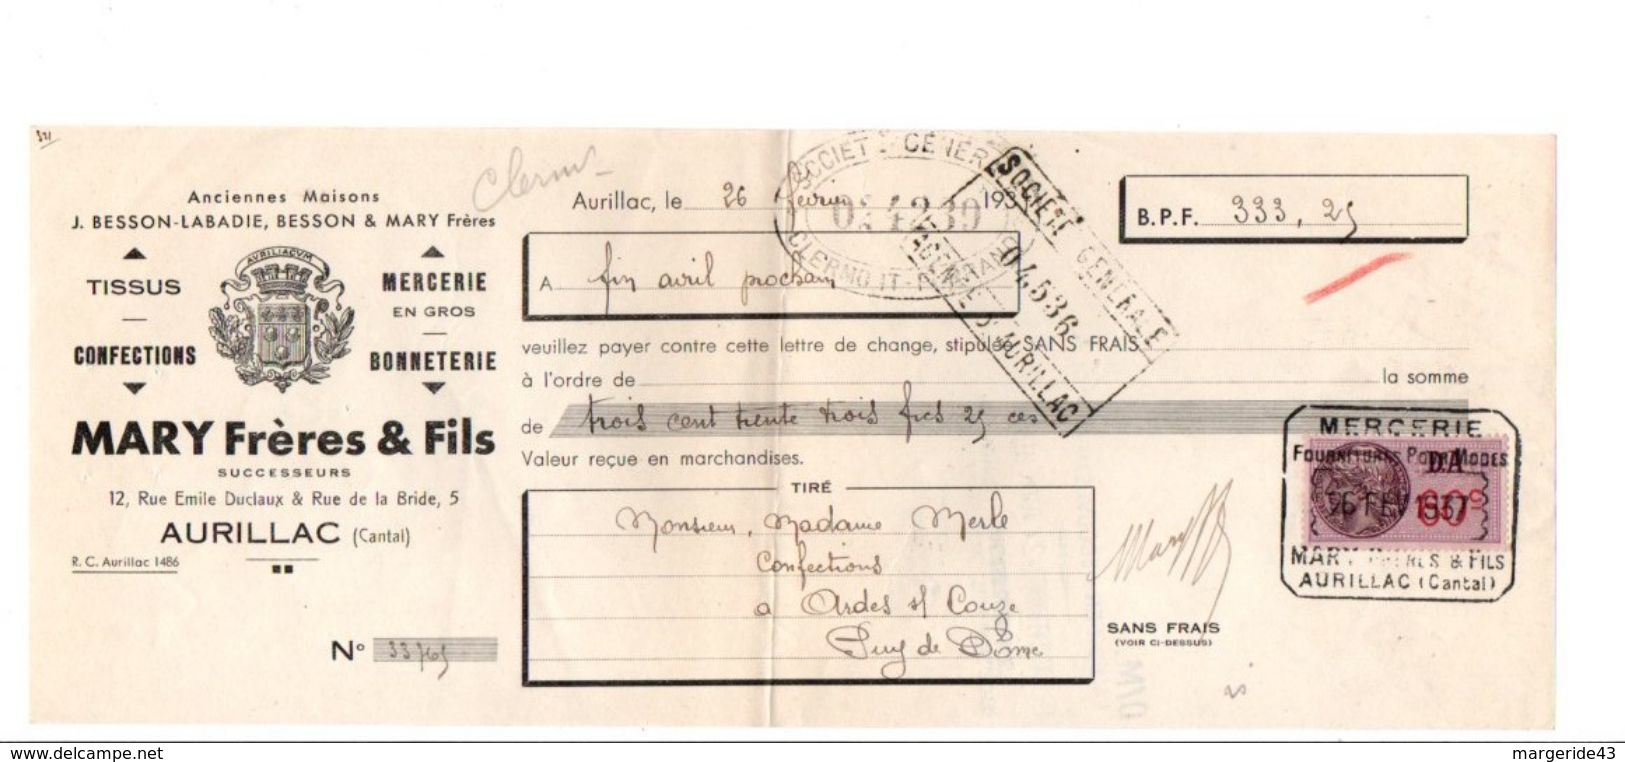 Anciennes Maisons
J. BESSON-LABADIE, BESSON & MARY Frères
AVRILIACVM
TISSUS
CONFECTIONS
MERCERIE
EN GROS
BONNETERIE
MARY Frères & Fils
SUCCESSEURS
12, Rue Emile Duclaux & Rue de la Bride, 5
AURILLAC (Cantal)
R. C. Aurillac 1486
N° 33765
Clermt
Aurillac, le 26 février 1937
B. P. F. 333,25
A fin avril prochain
veuillez payer contre cette lettre de change, stipulée SANS FRAIS
à l'ordre de la somme
de trois cent trente trois frcs 25 ces
Valeur reçue en marchandises.
TIRÉ
Monsieur, Madame Merle
Confections
à Ardes s/ Couze
Puy de Dôme
SOCIETE GENERALE
04536
AGENCE D'AURILLAC
SANS FRAIS
(VOIR CI-DESSUS)
MERCERIE
FOURNITURES POUR MODES
DA
60c
26 FEV 1937
MARY FRERES & FILS
AURILLAC (Cantal)
www.delcampe.net
margeride43